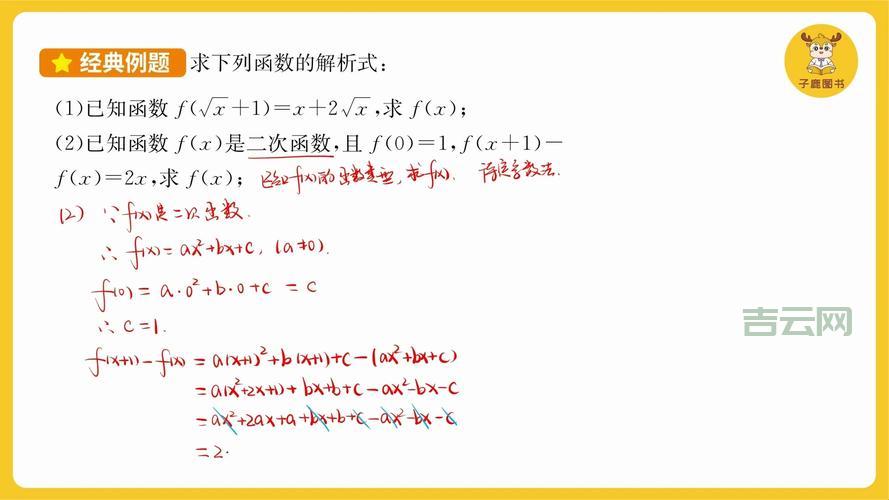 经典例题 求下列函数的解析式：
子鹿图书
(1)已知函数 f(√x+1)=x+2√x,求 f(x);
(2)已知函数 f(x)是二次函数,且 f(0)=1,f(x+1)-
f(x)=2x,求 f(x); 已知f(x)的函数类型,求f(x). 待定系数法.
(2) ∵ f(x)是二次函数.
∴ f(x)=ax²+bx+c, (a≠0).
f(0) = a·0²+b·0+c = c
∴ c=1.
吉云网
f(x+1)-f(x) = a(x+1)²+b(x+1)+c-(ax²+bx+c)
=a(x²+2x+1)+bx+b+c-ax²-bx-c
=ax²+2ax+a+bx+b+c-ax²-bx-c
=2·